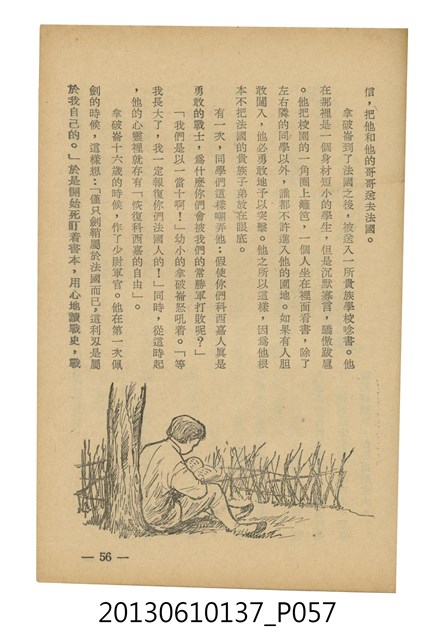 信，把他和他的哥哥送去法國。
拿破崙到了法國之後，被送入一所貴族學校唸書。他
在那裡是一個身材短小的學生，但是沉默寡言，驕傲跋扈
。他把校園的一角圈上籬笆，一個人坐在裡面看書，除了
左右隣的同學以外，誰都不許進入他的園地。如果有人胆
敢闖入，他必勇敢地予以突擊。他之所以這樣，因爲他根
本不把法國的貴族子弟放在眼底。
有一次，同學們這樣嘲弄他：假使你們科西嘉人眞是
勇敢的戰士，爲什麼你們會被我們的常勝軍打敗呢？」
「我們是以一當十啊！」幼小的拿破崙怒吼着。「等
我長大了，我一定報復你們法國人的！」同時，從這時起
，他的心靈裡就存有「恢復科西嘉的自由」。
拿破崙十六歲的時候，作了少尉軍官。他在第一次佩
劍的時候，這樣想：「僅只劍鞘屬於法國而已，這利刃是屬
於我自己的。」於是開始死盯着書本，用心地讀戰史，戰
— 56 —
20130610137_P057